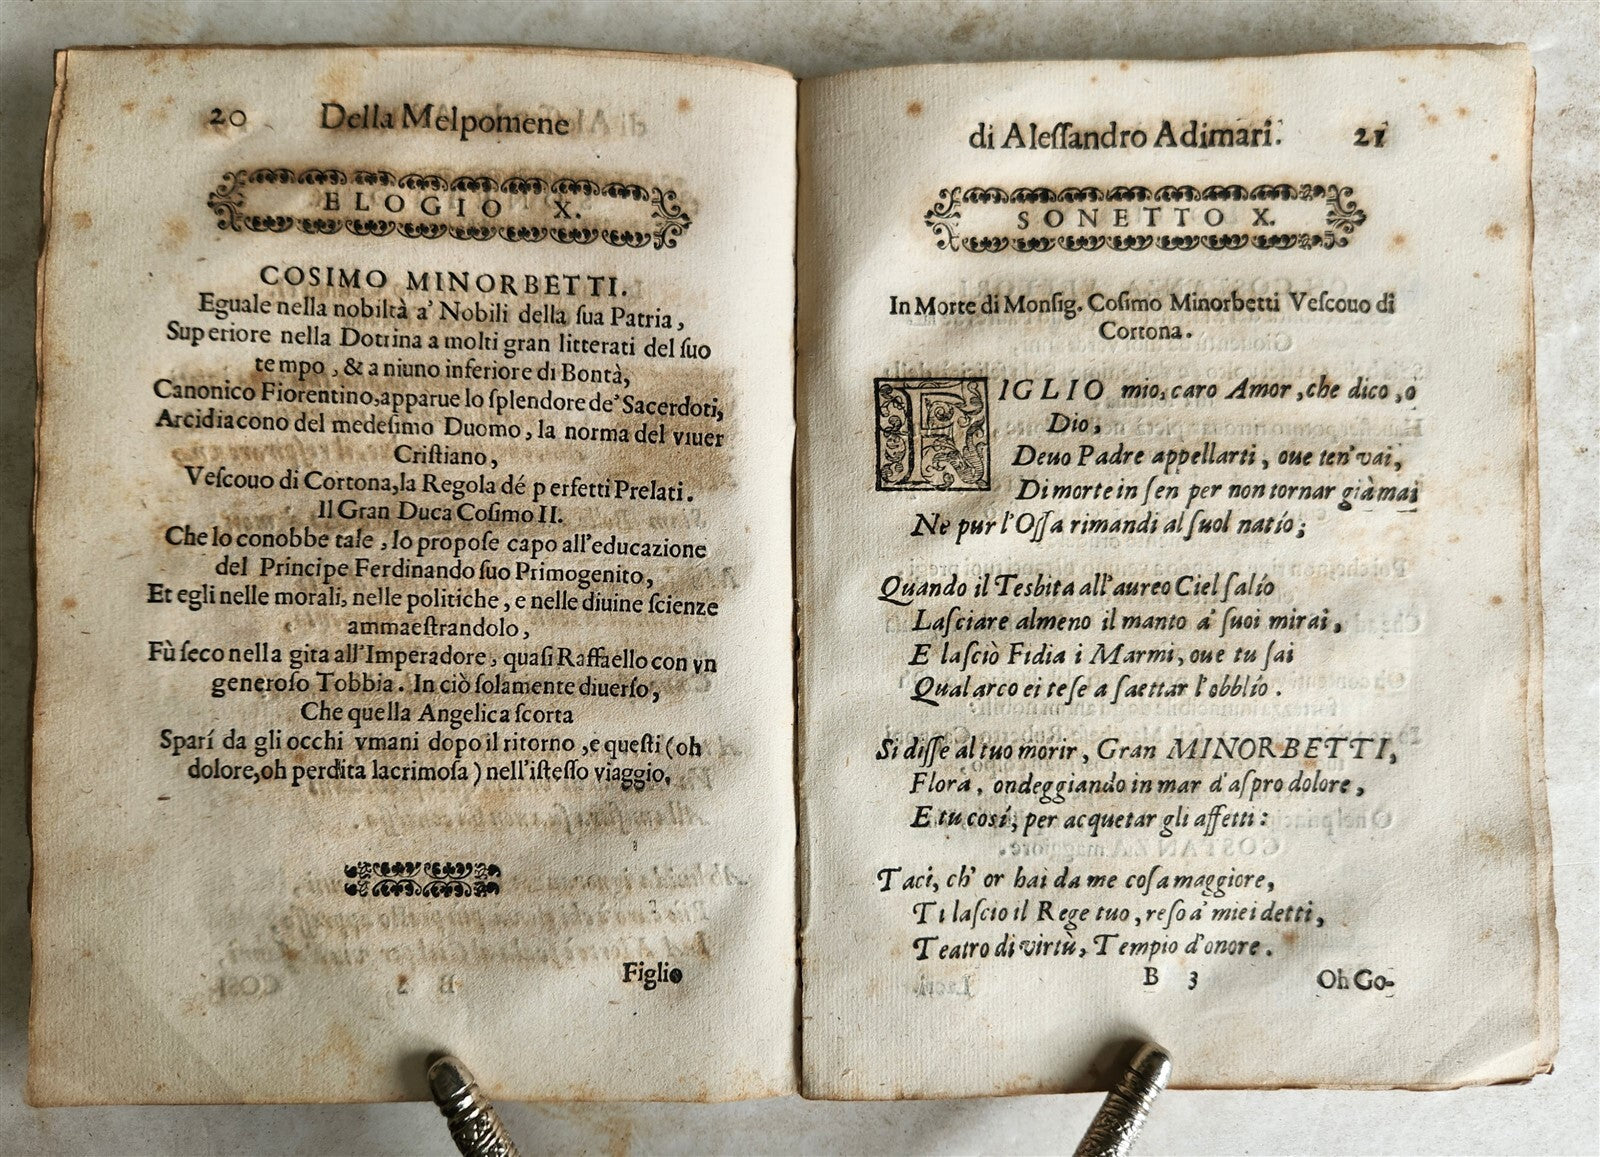 20 Della Melpomene
ELOGIO X.
COSIMO MINORBETTI.
Eguale nella nobiltà a' Nobili della ſua Patria,
Superiore nella Dottrina a molti gran litterati del ſuo
tempo, & a niuno inferiore di Bontà,
Canonico Fiorentino, apparue lo ſplendore de' Sacerdoti,
Arcidiacono del medeſimo Duomo, la norma del viuer
Criſtiano,
Veſcouo di Cortona, la Regola dé perfetti Prelati.
Il Gran Duca Coſimo II.
Che lo conobbe tale, lo propoſe capo all'educazione
del Principe Ferdinando ſuo Primogenito,
Et egli nelle morali, nelle politiche, e nelle diuine ſcienze
ammaeſtrandolo,
Fù ſeco nella gita all'Imperadore, quaſi Raffaello con vn
generoſo Tobbia. In ciò ſolamente diuerſo,
Che quella Angelica ſcorta
Sparí da gli occhi vmani dopo il ritorno, e queſti (oh
dolore, oh perdita lacrimoſa) nell'iſteſſo viaggio.
Figlio
di Aleſſandro Adimari. 21
SONETTO X.
In Morte di Monſig. Coſimo Minorbetti Veſcouo di
Cortona.
FIGLIO mio, caro Amor, che dico, ò
Dio,
Deuo Padre appellarti, oue ten' vai,
Di morte in ſen per non tornar già mai
Ne pur l'Oſſa rimandi al ſuol natío;
Quando il Tesbita all'aureo Ciel ſalío
Laſciare almeno il manto a' ſuoi mirai,
E laſciò Fidia i Marmi, oue tu ſai
Qual arco ei teſe a ſaettar l'obblío.
Si diſſe al tuo morir, Gran MINORBETTI,
Flora, ondeggiando in mar d'aſpro dolore,
E tu cosí, per acquetar gli affetti:
Taci, ch' or hai da me coſa maggiore,
Ti laſcio il Rege tuo, reſo a' miei detti,
Teatro di virtù, Tempio d'onore.
B 3 Oh Go-